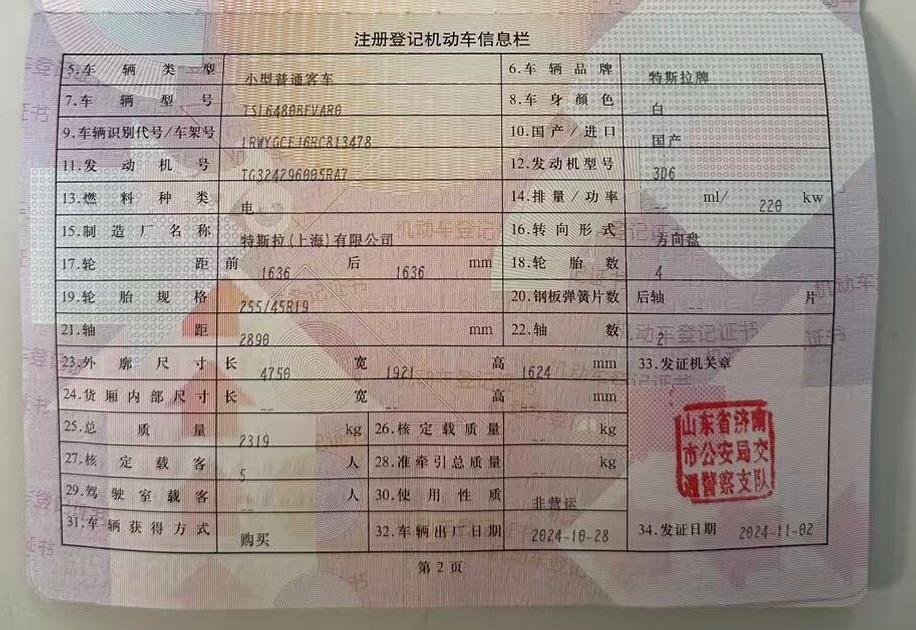 注册登记机动车信息栏
5.车辆类型 小型普通客车 6.车辆品牌 特斯拉牌
7.车辆型号 TSL6480BEVAR0 8.车身颜色 白
9.车辆识别代号/车架号 10.国产/进口 国产
11.发动机号 TG324296005RA7 12.发动机型号 3D6
13.燃料种类 电 14.排量/功率 -- ml/ 220 kw
15.制造厂名称 特斯拉(上海)有限公司 16.转向形式 方向盘
17.轮距 前 1636 后 1636 mm 18.轮胎数 4
19.轮胎规格 255/45R19 20.钢板弹簧片数 后轴 -- 片
21.轴距 2890 mm 22.轴数 2
23.外廓尺寸 长 4750 宽 1921 高 1624 mm 33.发证机关章
24.货厢内部尺寸 长 -- 宽 -- 高 -- mm
25.总质量 2319 kg 26.核定载质量 -- kg
27.核定载客 5 人 28.准牵引总质量 -- kg
29.驾驶室载客 -- 人 30.使用性质 非营运
31.车辆获得方式 购买 32.车辆出厂日期 2024-10-28 34.发证日期 2024-11-02
山东省济南
市公安局交
通警察支队
第2页